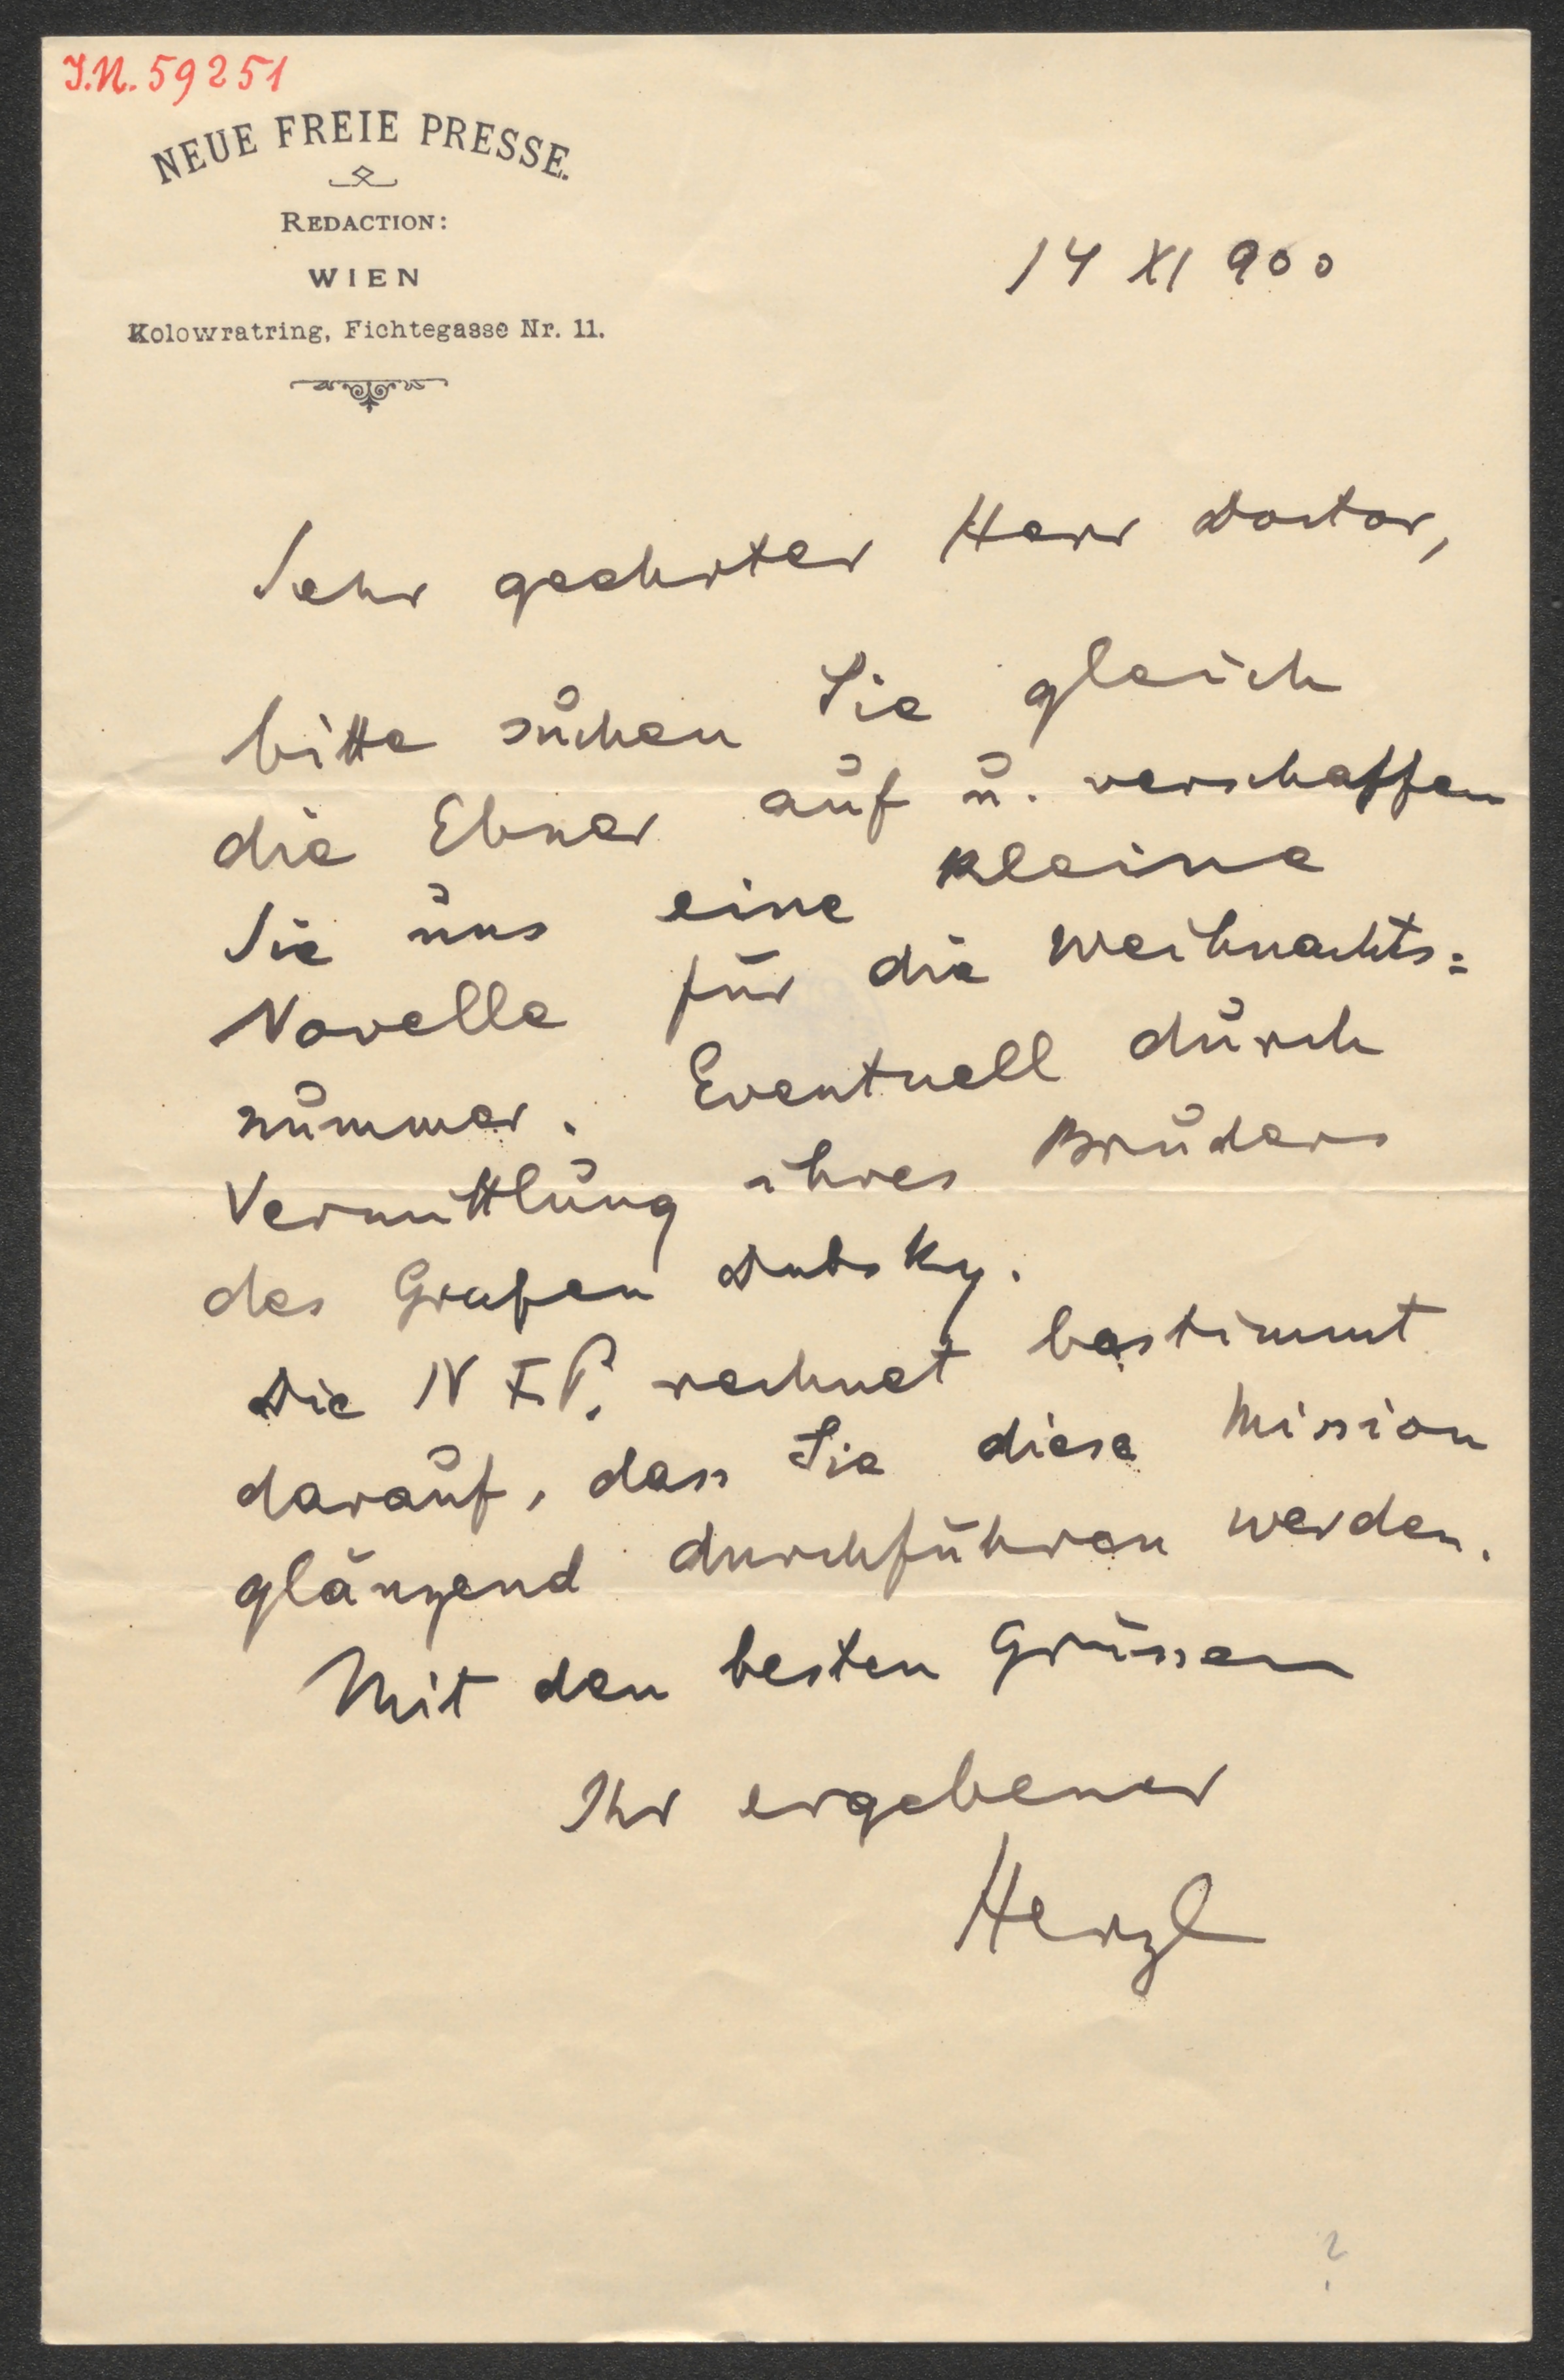 J.N. 59251
NEUE FREIE PRESSE.
REDACTION:
WIEN
Kolowratring, Fichtegasse Nr. 11.
14 XI 900
Sehr geehrter Herr Doctor,
bitte suchen Sie gleich
die Ebner auf u. verschaffen
Sie uns eine kleine
Novelle für die Weihnachts=
nummer. Eventuell durch
Vermittlung ihres Bruders
des Grafen Dubsky.
Die N F. P. rechnet bestimmt
darauf, dass Sie diese Mission
glänzend durchführen werden.
Mit den besten Grüssen
Ihr ergebener
Herzl
?